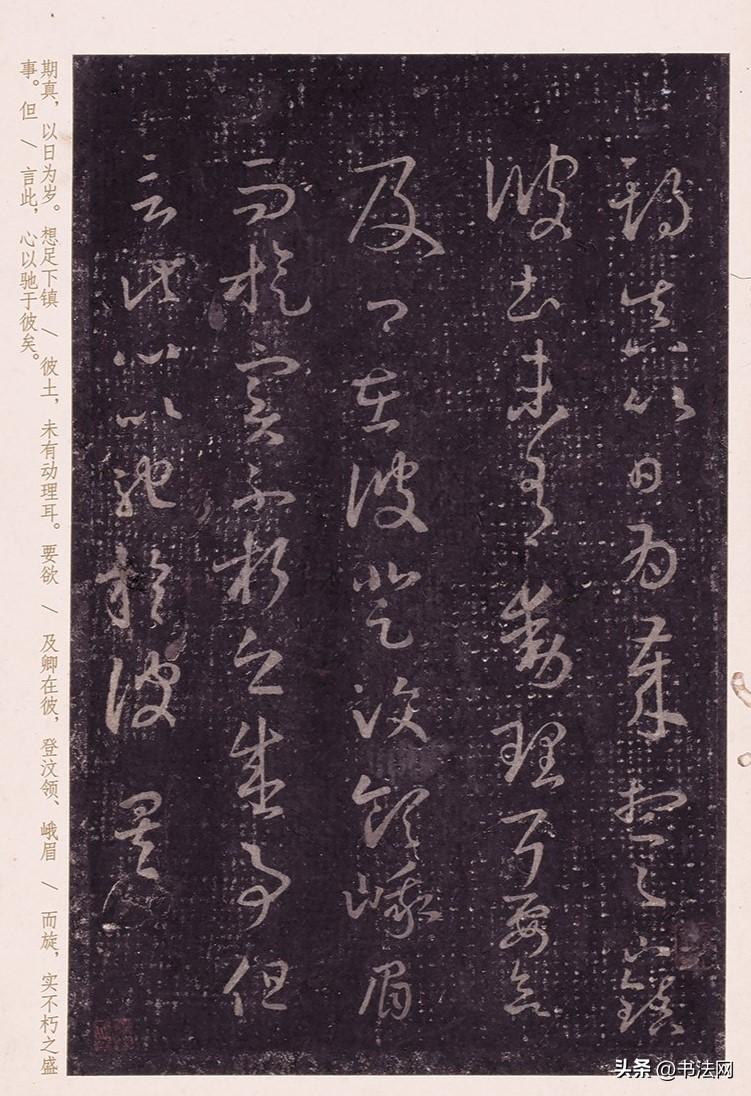 期真以日為歲想足下鎮
彼土未有動理耳要欲
及卿在彼登汶領峨眉
而旋實不朽之盛事但
言此心以馳於彼矣
期真，以日为岁。想足下镇 / 彼土，未有动理耳。要欲 / 及卿在彼，登汶领、峨眉 / 而旋，实不朽之盛
事。但 / 言此，心以驰于彼矣。
头条 @书法网